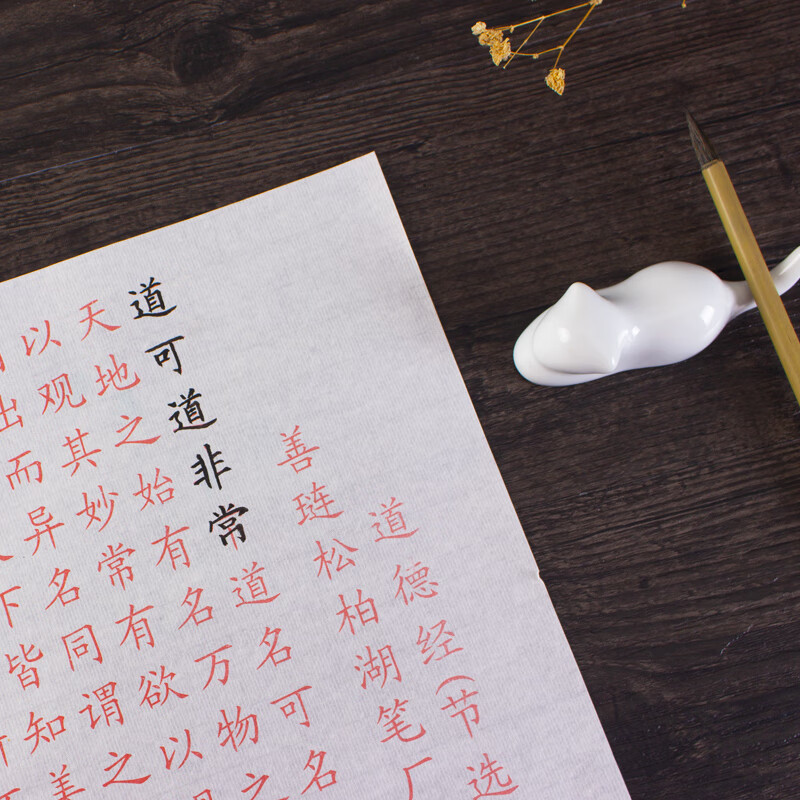 道德经(节选
善琏松柏湖笔厂
道可道非常道名可名
天地之始有名万物之
以观其妙常有欲以观
出而异名同谓之
下皆知美